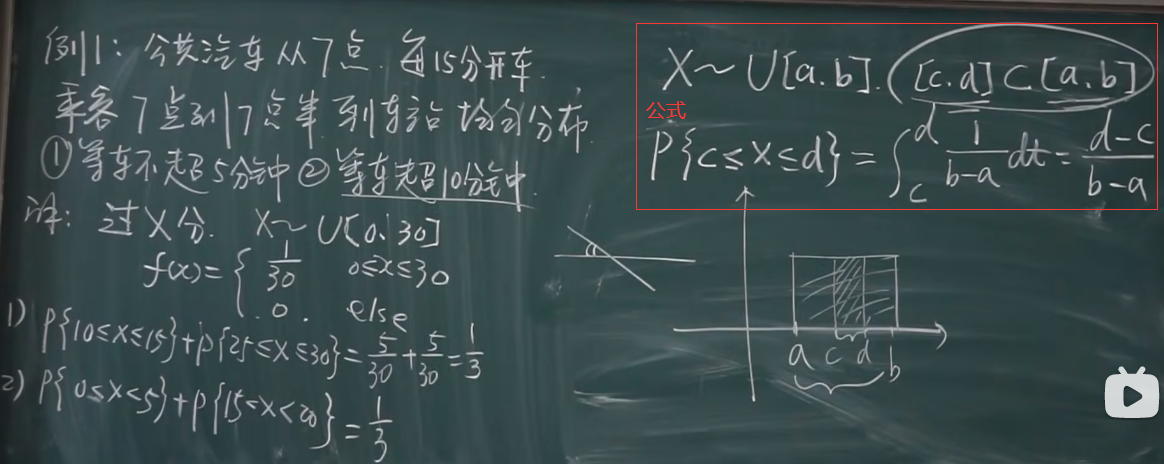 例1：公共汽车从7点.每15分开车.
乘客7点到7点半到车站 均匀分布.
①等车不超5分钟 ②等车超10分钟.
解：过X分. X~U[0,30]
f(x)={ 1/30 0≤x≤30
0. else
1) P{10≤x≤15}+P{25≤x≤30}=5/30+5/30=1/3
2) P{0≤x<5}+P{15<x<20}=1/3
X~U[a.b]. [c.d]⊂[a.b]
公式
P{c≤X≤d}=∫_c^d 1/(b-a) dt=(d-c)/(b-a)
a c d b